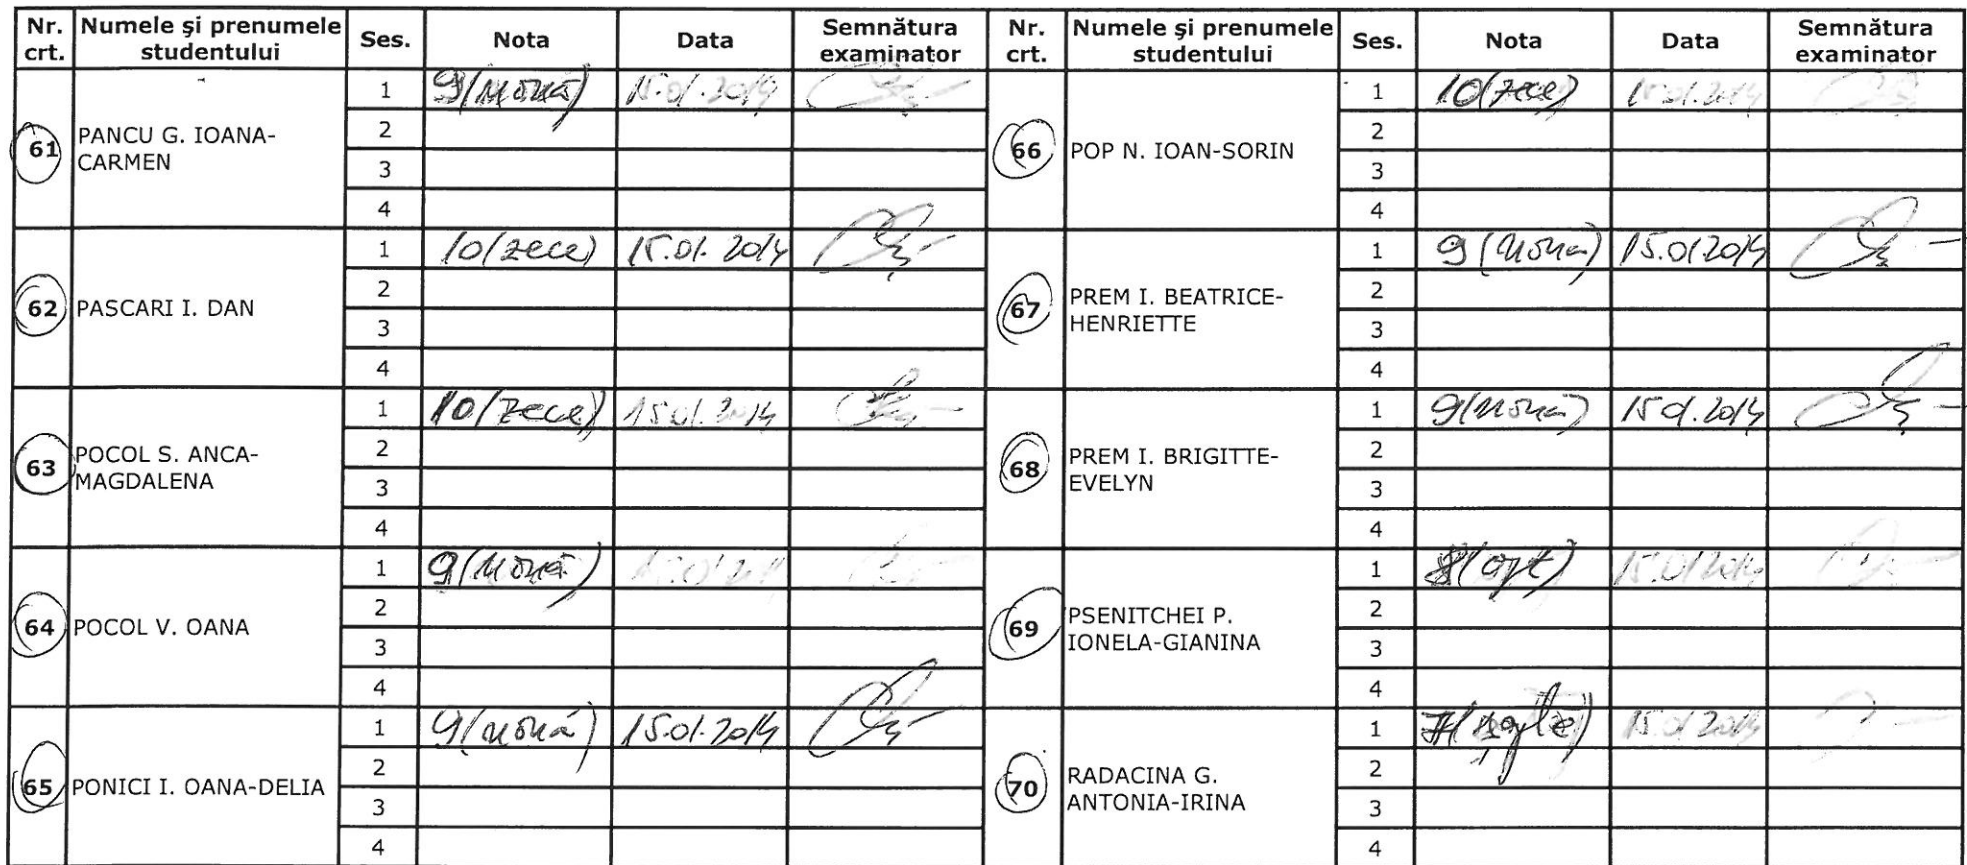 Nr. crt. Numele şi prenumele studentului Ses. Nota Data Semnătura examinator
61 PANCU G. IOANA-CARMEN
1 9(nouă) 15.01.2014
2
3
4
62 PASCARI I. DAN
1 10(zece) 15.01.2014
2
3
4
63 POCOL S. ANCA-MAGDALENA
1 10(zece) 15.01.2014
2
3
4
64 POCOL V. OANA
1 9(nouă)
2
3
4
65 PONICI I. OANA-DELIA
1 9(nouă) 15.01.2014
2
3
4
Nr. crt. Numele şi prenumele studentului Ses. Nota Data Semnătura examinator
66 POP N. IOAN-SORIN
1 10(zece) 15.01.2014
2
3
4
67 PREM I. BEATRICE-HENRIETTE
1 9(nouă) 15.01.2014
2
3
4
68 PREM I. BRIGITTE-EVELYN
1 9(nouă) 15.01.2014
2
3
4
69 PSENITCHEI P. IONELA-GIANINA
1 8(opt) 15.01.2014
2
3
4
70 RADACINA G. ANTONIA-IRINA
1 7(şapte) 15.01.2014
2
3
4